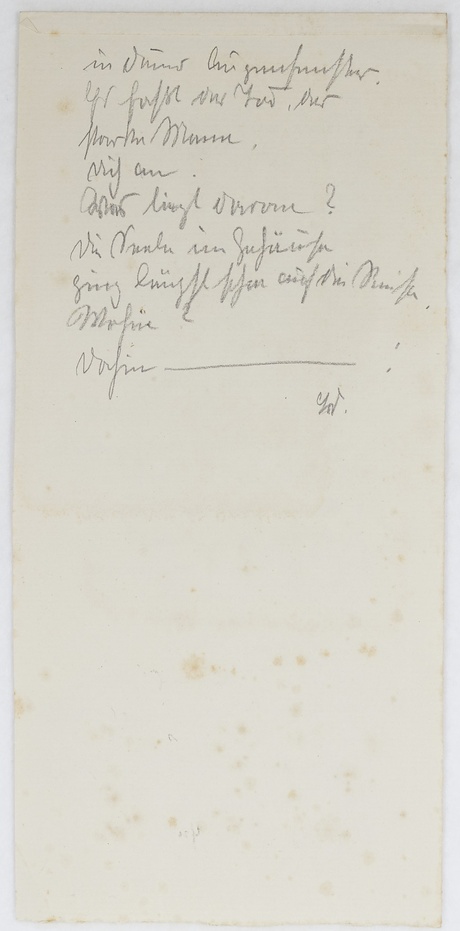 in deine Augenfenster.
Es faßt der Tod, der
starke Mann,
dich an.
Was liegt daran?
Die Seele im Gehäuse
ging längst schon auf die Reise.
Wohin?
Dahin — !